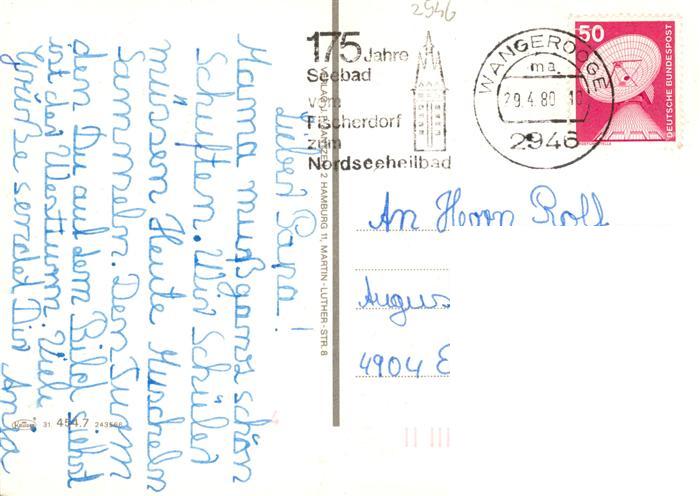 Lieber Papa!
Mama muß ganz schön
schuften. Wir Schüler
müssen Heute Muscheln
Sammeln. Dem Turm
dem Du auf dem Bild siehst
ist der Westturm. Viele
Grüße sendet Dir Anja
2946
175 Jahre
Seebad
vom
Fischerdorf
zum
Nordseeheilbad
WANGEROOGE
ma
29.4.80
2946
50
DEUTSCHE BUNDESPOST
2 HAMBURG 11, MARTIN-LUTHER-STR. 8
An Herrn Rolf
Augus
4904 E
31 454.7 243566